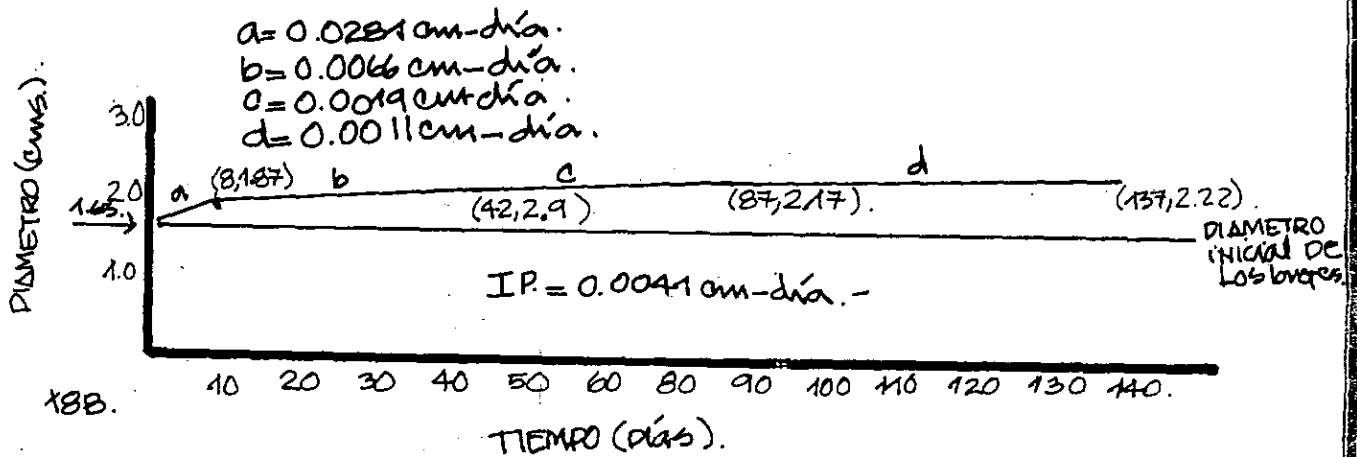 a= 0.0281 cm-día.
b= 0.0066 cm-día.
c= 0.0019 cm-día.
d= 0.0011 cm-día.
DIAMETRO (cms.).
3.0
2.0
1.65.
1.0
a (8,1.87) b c d
(42,2.9) (87,2.17). (137,2.22).
DIAMETRO
INICIAL DE
Los
I.P. = 0.0041 cm-día.-
10 20 30 40 50 60 80 90 100 110 120 130 140.
TIEMPO (DíAS).